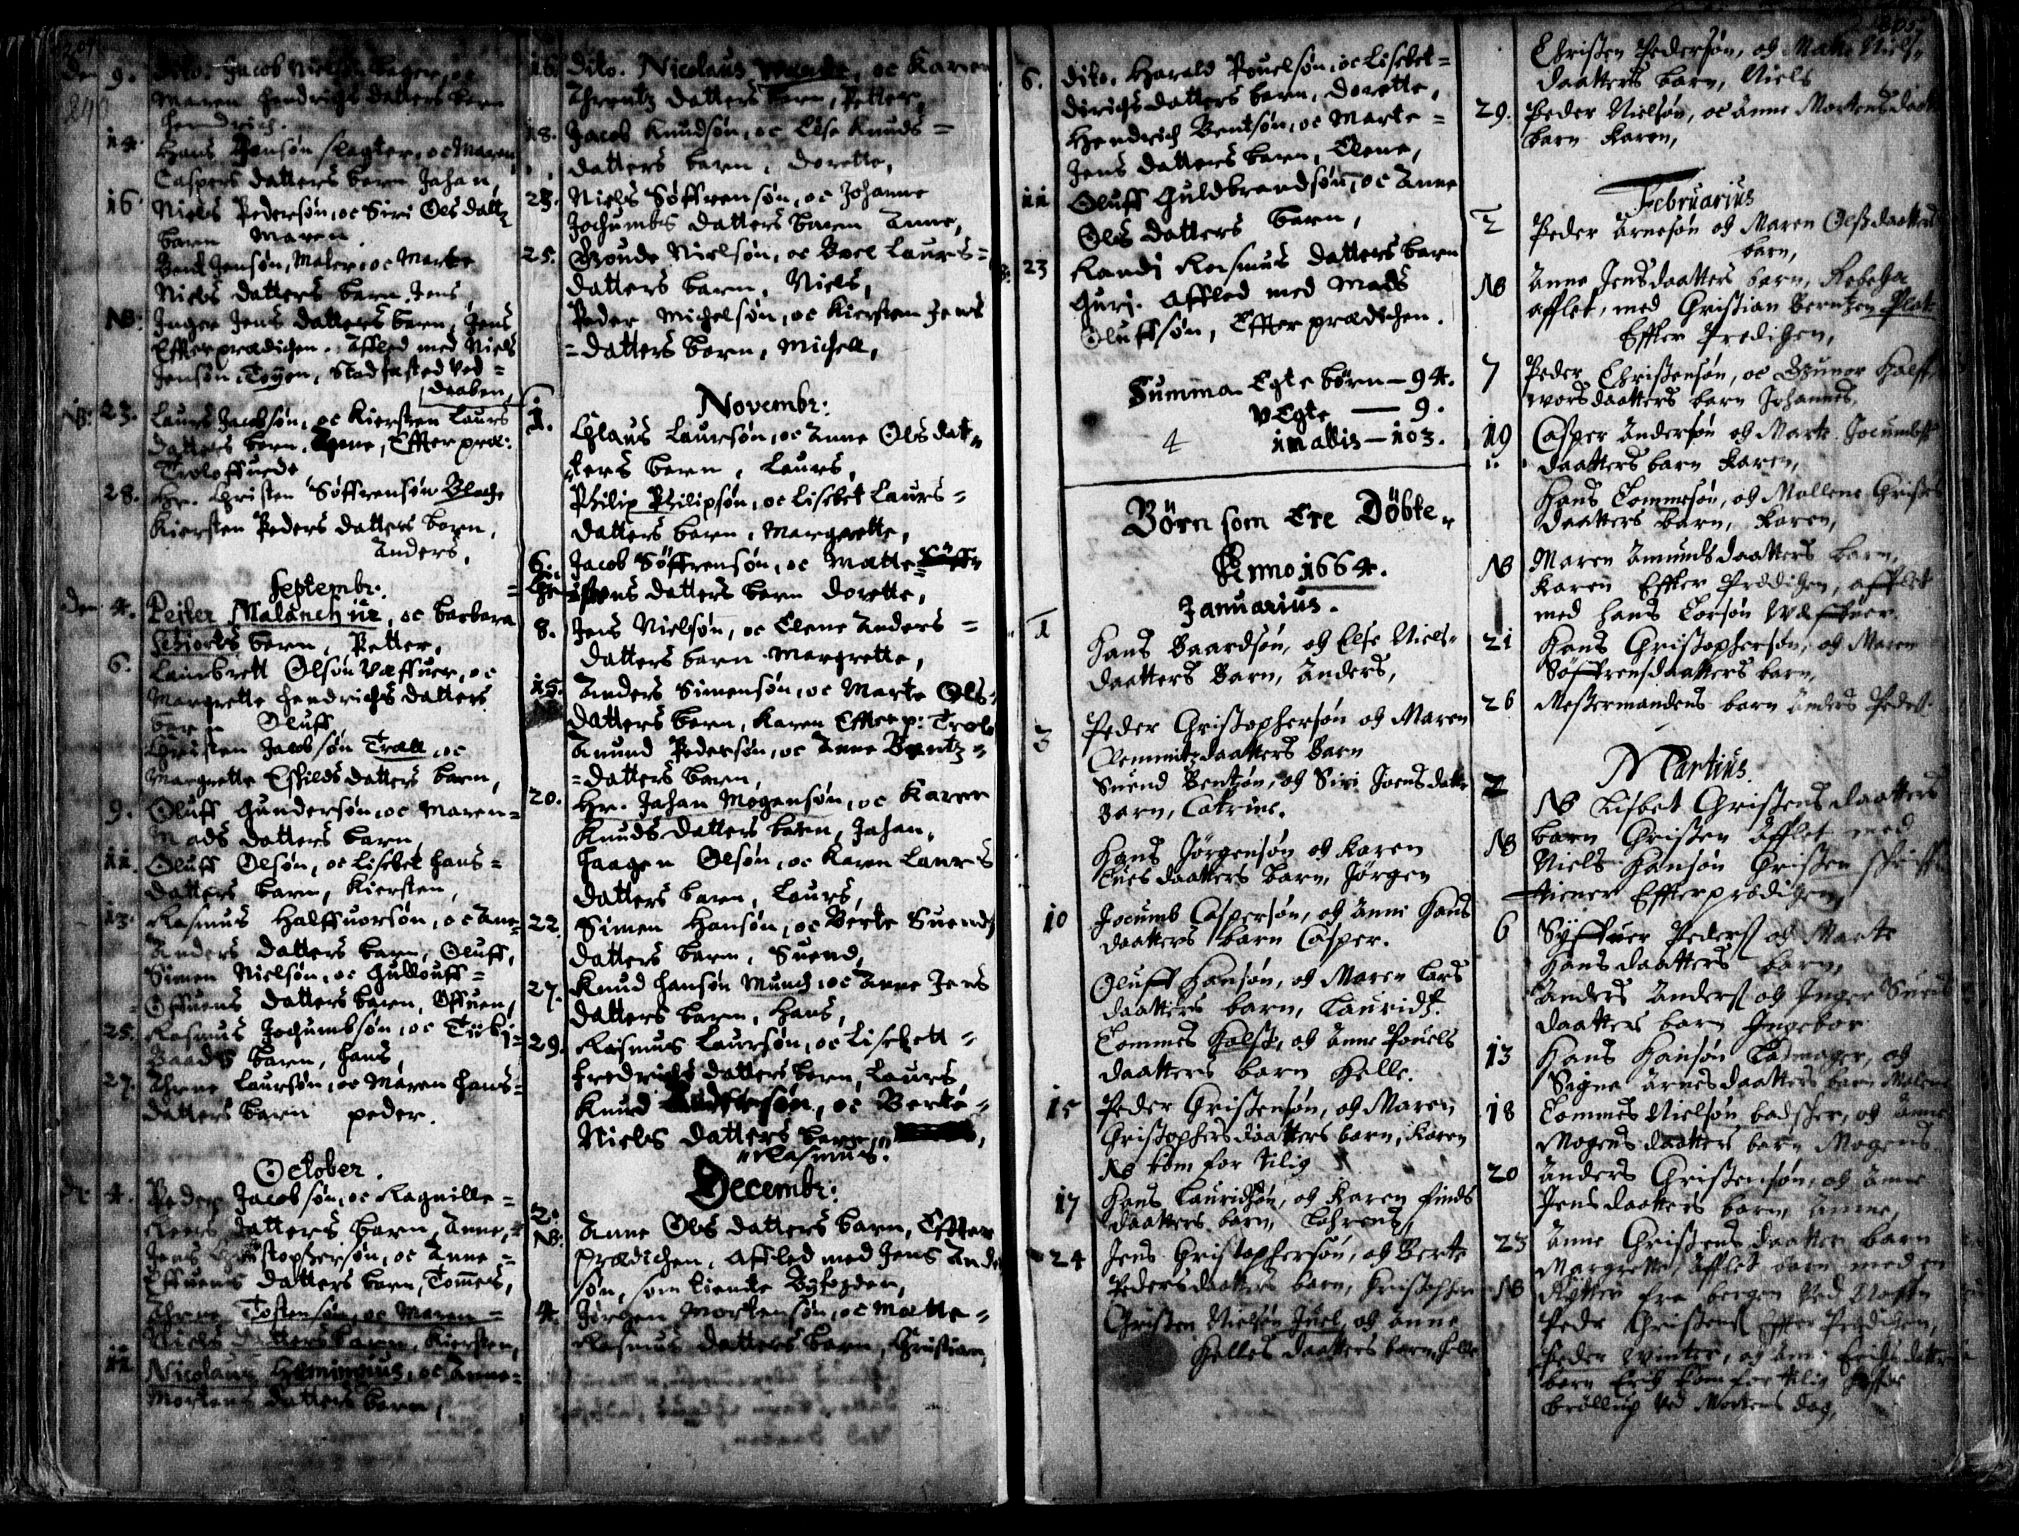 den 9. dito. Jacob Nielsøn Bager, oc
Maren Hendrichs datters barn
Hendrich.
14. Hans Jensøn slagter, oc Maren
Caspers datters barn Johan,
16. Niels Pedersøn, oc Siri Ols datt
barn Maren.
Bent Jensøn, Maler, oc Marte
Niels datters barn Jens
NB: Inger Jens datters barn, Jens
Effter prædichen. Affled med Niels
Jensøn Toyen, stadfasted ved =
daaben,
NB: 23. Laurs Jacobsøn, oc Kiersten Laurs
datters barn. Anne, Effter præ:
Troloffuede
28. Hr. Christen Søffrensøn Blache
Kiersten Peders datters barn,
Anders,
Septembr:
den 4. Peiter Malanchur, oc barbara
barn, Petter,
6. Lambrett Olsøn Væffuer, oc
Margrette Hendrichs datters
barn Oluff
Christen Jacobsøn Trall, oc
Margrette Eskilds datters barn,
9. Oluff Gundersøn, oc Maren =
Mads datters barn
11. Oluff Olsøn, oc Lisebet Hans =
datters barn, Kiersten,
13. Rasmus Halffuorsøn, oc Ane
Anders datters barn, Oluff,
Simen Nielsøn, oc Gullouff =
= Offuens datters barn, Offuen,
25. Rasmus Jochumbsøn, oc
Baads barn, Hans,
27. Thrne Laursøn, oc Maren Hans =
datters barn peder.
October.
4. Peder Jacobsøn, oc Ragnille =
datters barn, Anne,
Jens Christophersøn, oc Anne =
Effuens datters barn, Tommes,
Thrne Tostensøn, oc Maren =
Niels datters barn, Kiersten,
11. Nicolaus Hemingius, oc Anne =
Mortens datters barn,
16. dito. Nicolaus, oc Karen
Threntz datters barn, Petter,
18. Jacob Knudsøn, oc Else Knuds =
datters barn, Dorette,
23. Niels Søffrensøn, oc Johanne
Jochumbs datters barn Anne,
25. Goude Nielsøn, oc Boel Laurs =
datters barn, Niels,
Peder Michelsøn, oc Kiersten Jens
= datters barn, Michell,
Novembr:
1. Claus Laursøn, oc Anne Ols dat =
ters barn, Laurs,
Philip Philipsøn, oc Lisebet Laurs =
datters barn, Margrette,
6. Jacob Søffrensøn, oc Matte
datters barn Dorette,
8. Jens Nielsøn, oc Elene Anders =
datters barn Margrette,
15. Anders Simensøn, oc Marte Ols =
datters barn, Karen Effter p: Trol
Amund Pedersøn, oc Anne Bentz =
= datters barn,
20. Hr. Johan Mogensøn, oc Karen
Knuds datters barn, Johan,
Haagen Olsøn, oc Karen Laurs
datters barn, Laurs,
22. Simen Hansøn, oc Berte Suends
datters barn, Suend,
27. Knud Hansøn Munch, oc Anne Jens
datters barn, Hans,
29. Rasmus Laursøn, oc Lisebett =
Fredrichs datters barn, Laurs,
Knud, oc Berte =
Niels datters barn,
Rasmus.
Decembr:
2. Anne Ols datters barn, Effter
NB: Prædichen, Affled med Jens Ande
søn, som tiente Byfogden,
4. Jørgen Mortensøn, oc Matte =
Rasmus datters barn, Christian,
6. dito. Harald Pouelsøn, oc Lisebet =
Dirichs datters barn, Dorette,
Hendrich Bentsøn, oc Marte =
Jens datters barn, Elene,
11 Oluff Guldbrandsøn, oc Anne
Ols datters barn,
23 Randi Rasmus datters barn
Guri. Affled med Mads
Oluffsøn, Effter prædichen.
Summa Egte børn — 94.
VEgte — 9.
in allis — 103.
4
Børn som Ere Döbte
Anno 1664.
Januarius.
1 Hans Baardsøn, og Else Niels =
daatters Barn, Anders,
3 Peder Christophersøn og Maren
Clemmitzdaatters Barn
Suend Bentsøn, og Siri Joensdatter
Barn, Catrine.
Hans Jørgensøn og Karen
daatters barn, Jørgen
10 Jocumb Caspersøn, og Anni Hans
daatters barn Casper.
Oluff Hansøn, og Maren Lars
daatters barn, Lauridtz.
Tommes Holst, og Anne Pouels
daatters barn Helle.
15 Peder Christensøn, og Maren
Christophersdaatters barn, Karen
NB kom for tilig
17 Hans Lauridsøn, og Karen Finds
daatters barn, Tohrens,
24 Jens Christophersøn, og Berte
Pedersdaatters barn, Christophher
Christen Nielsøn Juel, og Anne
Helles daatters barn, Helle
Christen Pedersøn, og Matte Niels =
daatters barn, Niels
29. Peder Nielsøn, oc Anne Mortensdaatt
barn Karen,
Februarius
2 Peder Arnesøn og Maren Olsdaatters
barn,
NB Anne Jensdaatters barn, Rebecha
afflet, med Christian Berntzen Plat
Effter Predichen,
7 Peder Christensøn, oc Gunor Halff
worsdaatters barn Johannes.
19 Casper Andersøn og Marte Jocumbs
daatters barn Karen,
Hans Tommesøn, og Mallene Christens
daatters barn, Karen,
NB Maren Amundsdaatters barn,
Karen Effter Prædichen, afflet
med Hans Torsøn Wæffuer.
21 Hans Christophersøn, og Maren
Søffrensdaatters barn,
26 Mestermandens barn Anders Peders
Martius.
2 NB Lisbet Christensdaatters
NB barn Christen Afflet med
Niels Hansøn Christen
tiener Effterprædichen
6 Syffuer Peders og Marte
Hansdaatters barn,
Anders Anders og Inger Suends
daatters barn Ingebor
13 Hans Hansøn, og
Signe Arnesdaatters barn Malene
18 Tommes Nielsøn badsker, og Anne
Mogensdaatters barn Mogens
20 Anders Christensøn, og Anne
Jensdaatters barn Anne,
23 Anne Christensdaatters barn
Margrette, Afflet med en
NB Rytter fra bergen ved Naffn
Peder Christens Effter Prædichen,
Peder Winter, og Anne Eriksdatter
barn Erich kom for tilig
brøllup ved Mortens dag,